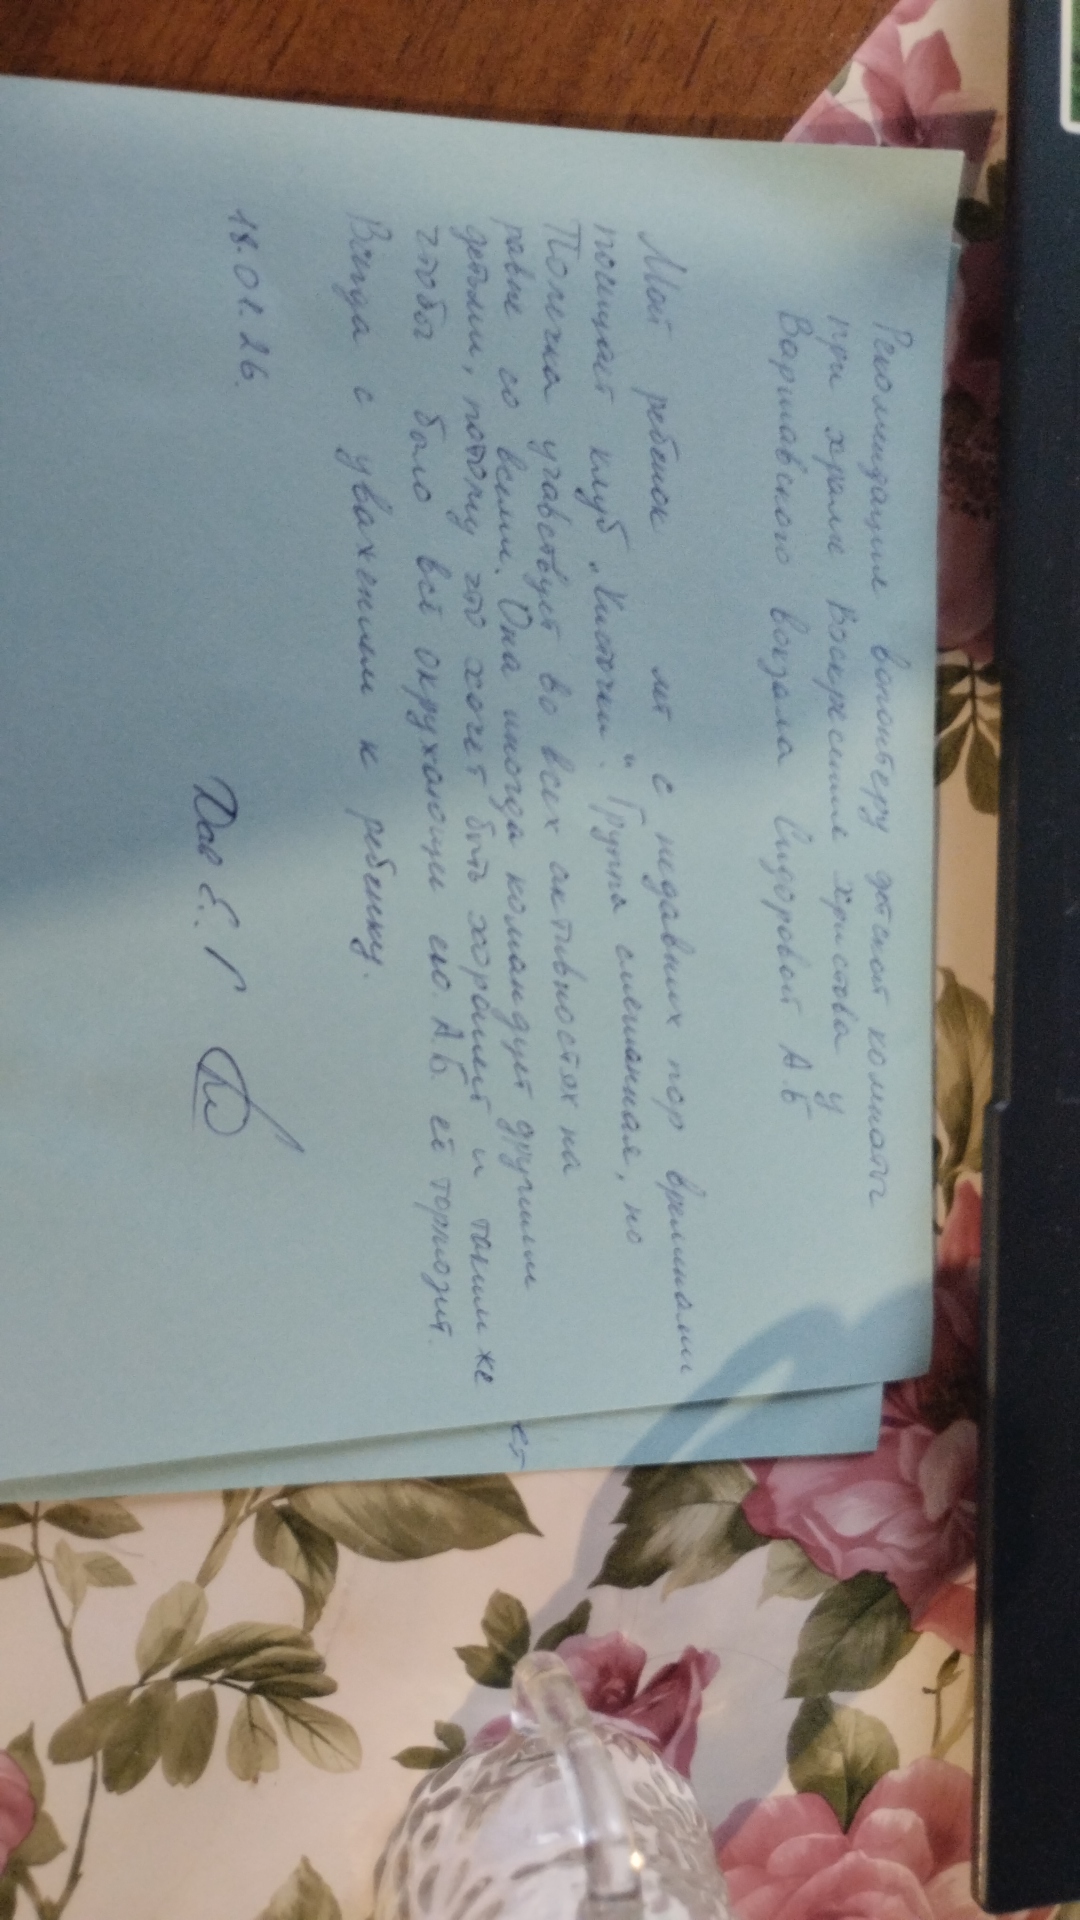 Рекомендация волонтеру детской комнаты
при храме Воскресения Христова у
Варшавского вокзала Сидоровой А.Б
Мой ребенок лет с недавних пор временами
посещает клуб „Кисточки". Группа смешанная, но
Полечка учавствует во всех активностях на
равне со всеми. Она иногда командует другими
детьми, потому что хочет быть хорошей и таким же
чтобы было всё окружающие его. А.Б. её тормозит.
Всегда с уважением к ребенку.
18.01.26.
Е. Г
ет